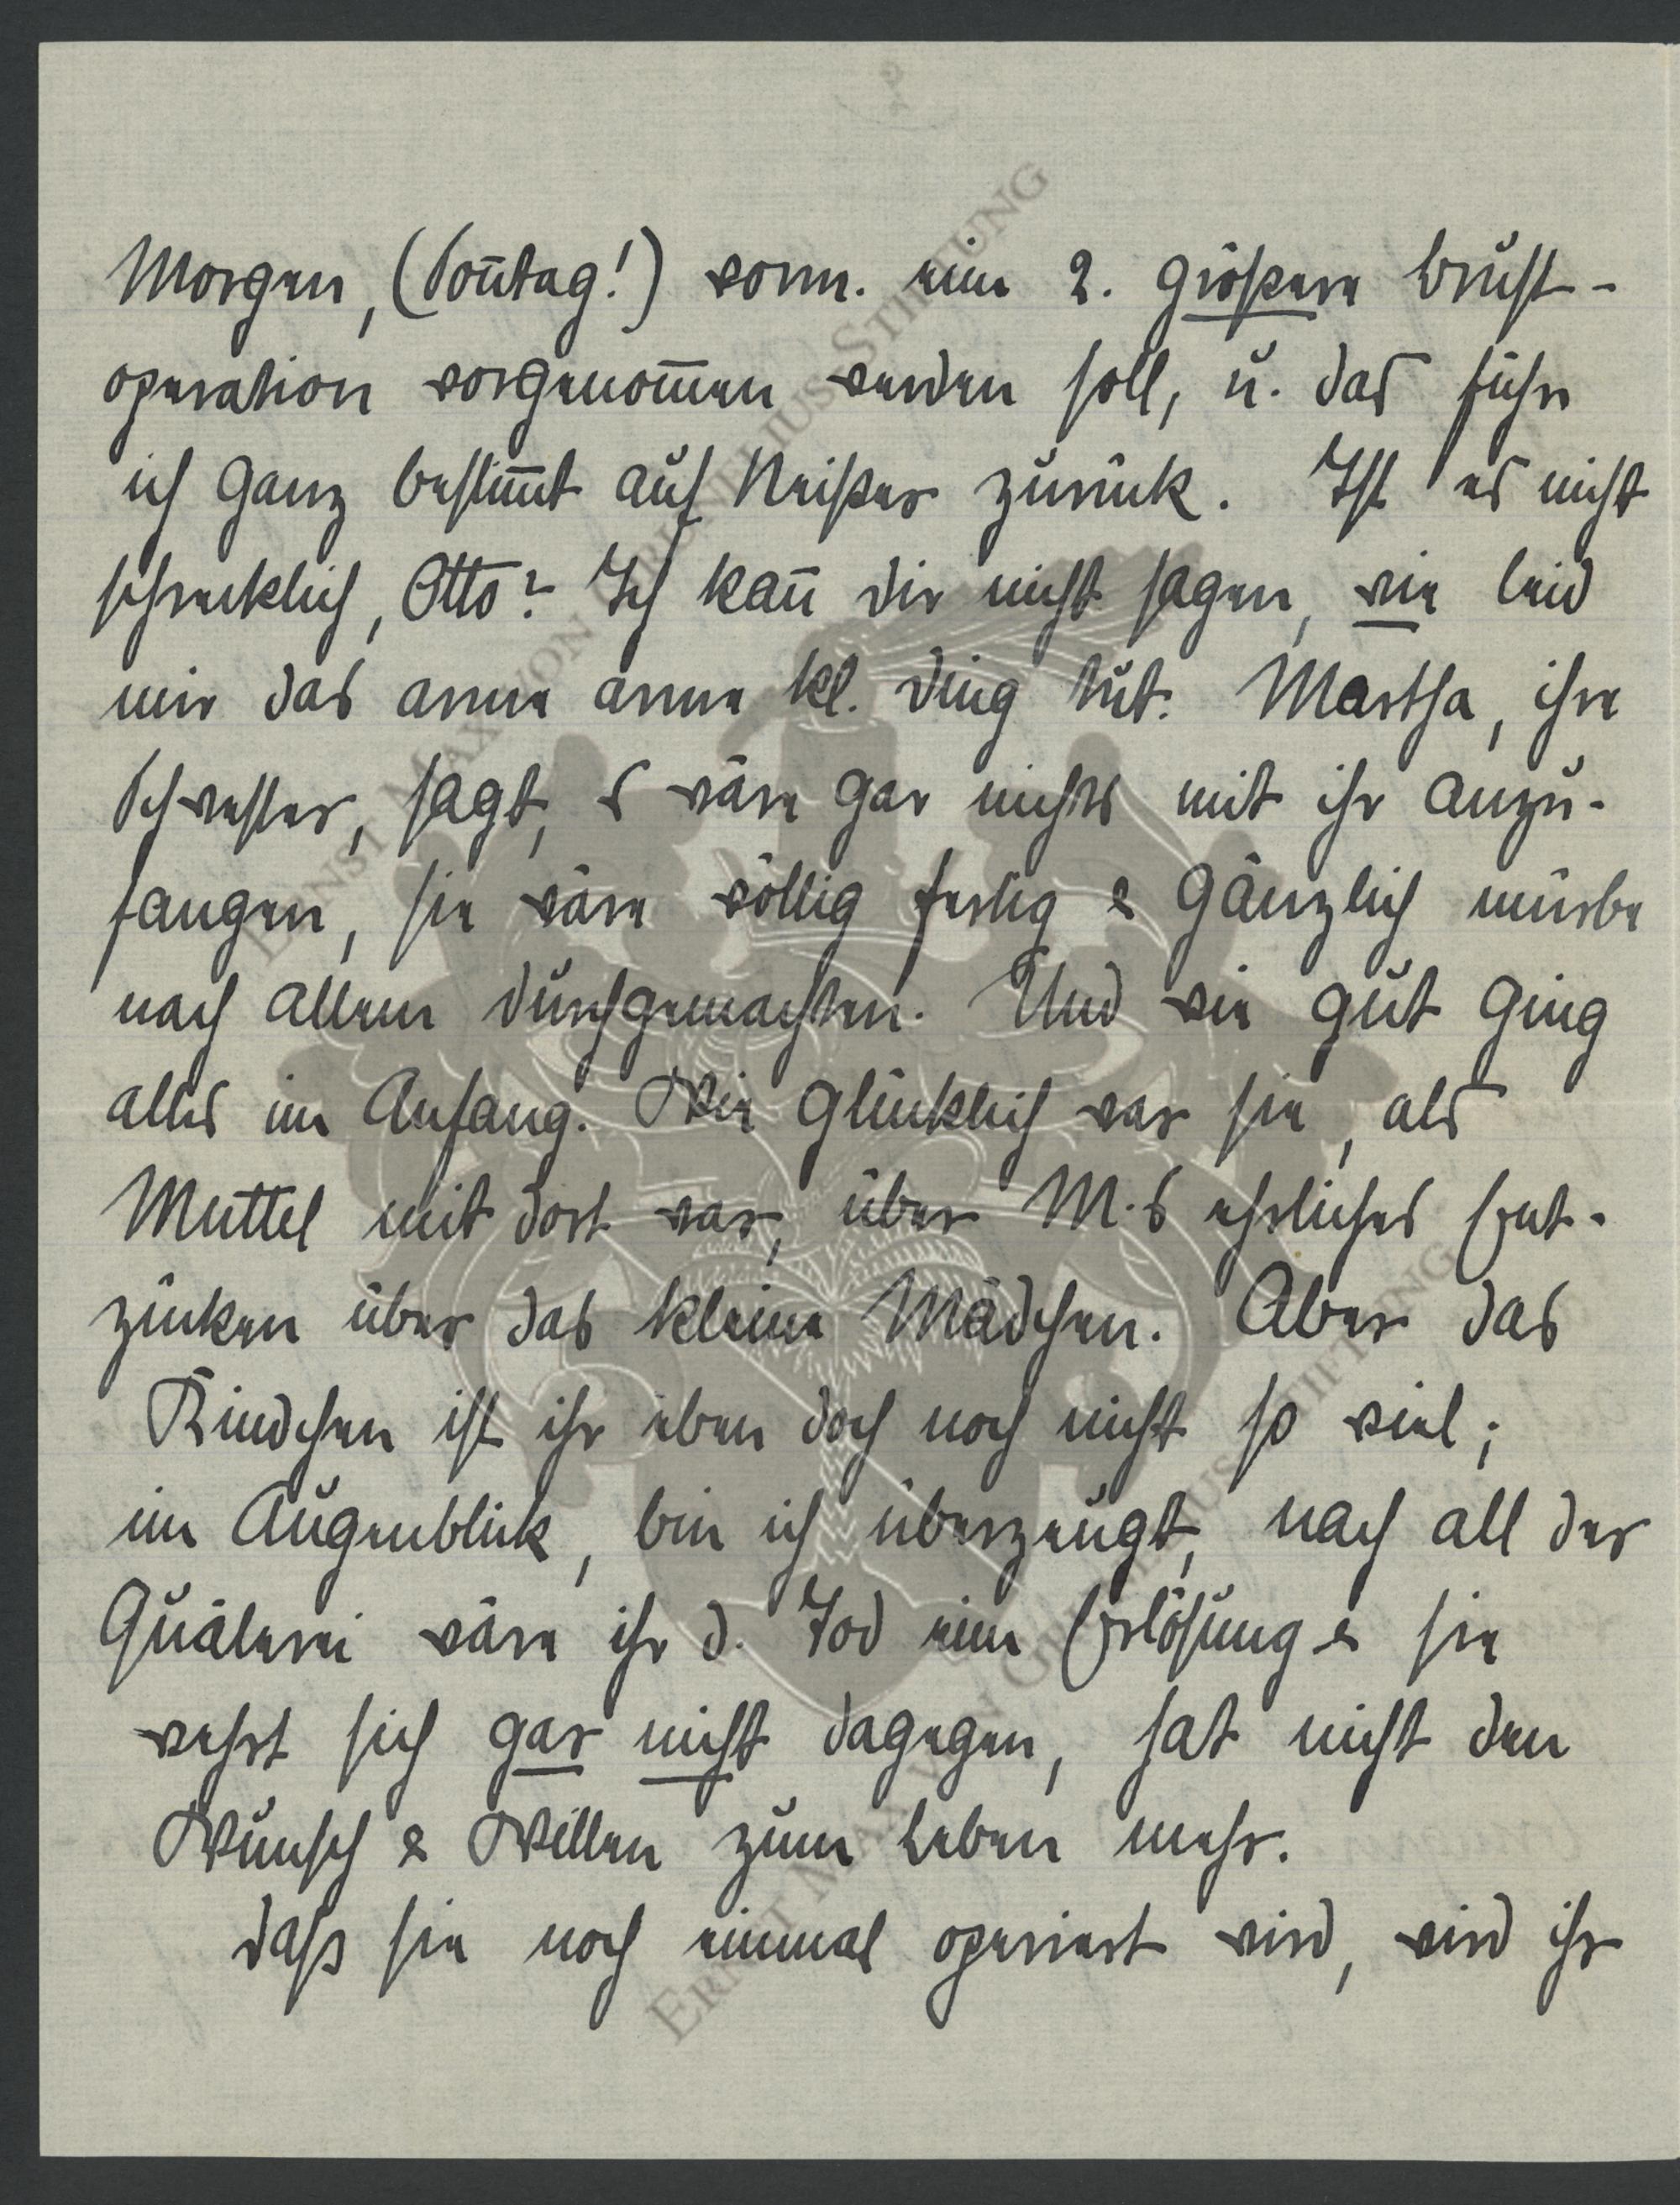 Morgen, (Soñtag!) vorm. eine 2. größere Brust-
operation vorgenom̄en werden soll, u. das führe
ich ganz bestim̄t auf Neißer zurück. Ist es nicht
schrecklich, Otto? Ich kañ dir nicht sagen, wie leid
mir das arme arme kl. Ding tut. Martha, ihre
Schwester, sagt, s wäre gar nichts mit ihr anzu-
fangen, sie wäre völlig fertig & gänzlich mürbe
nach allem Durchgemachten. Und wie gut ging
alles im Anfang. Wie glücklich war sie, als
Muttel mit dort war, über M.s ehrliches Ent-
zücken über das kleine Mädchen. Aber das
Kindchen ist ihr eben doch noch nicht so viel;
im Augenblick, bin ich überzeugt, nach all der
Quälerei wäre ihr d. Tod eine Erlösung & sie
wehrt sich gar nicht dagegen, hat nicht den
Wunsch & Willen zum Leben mehr.
Dass sie noch einmal operiert wird, wird ihr
ERNST MAX VON GRUNELIUS STIFTUNG
ERNST MAX VON GRUNELIUS STIFTUNG